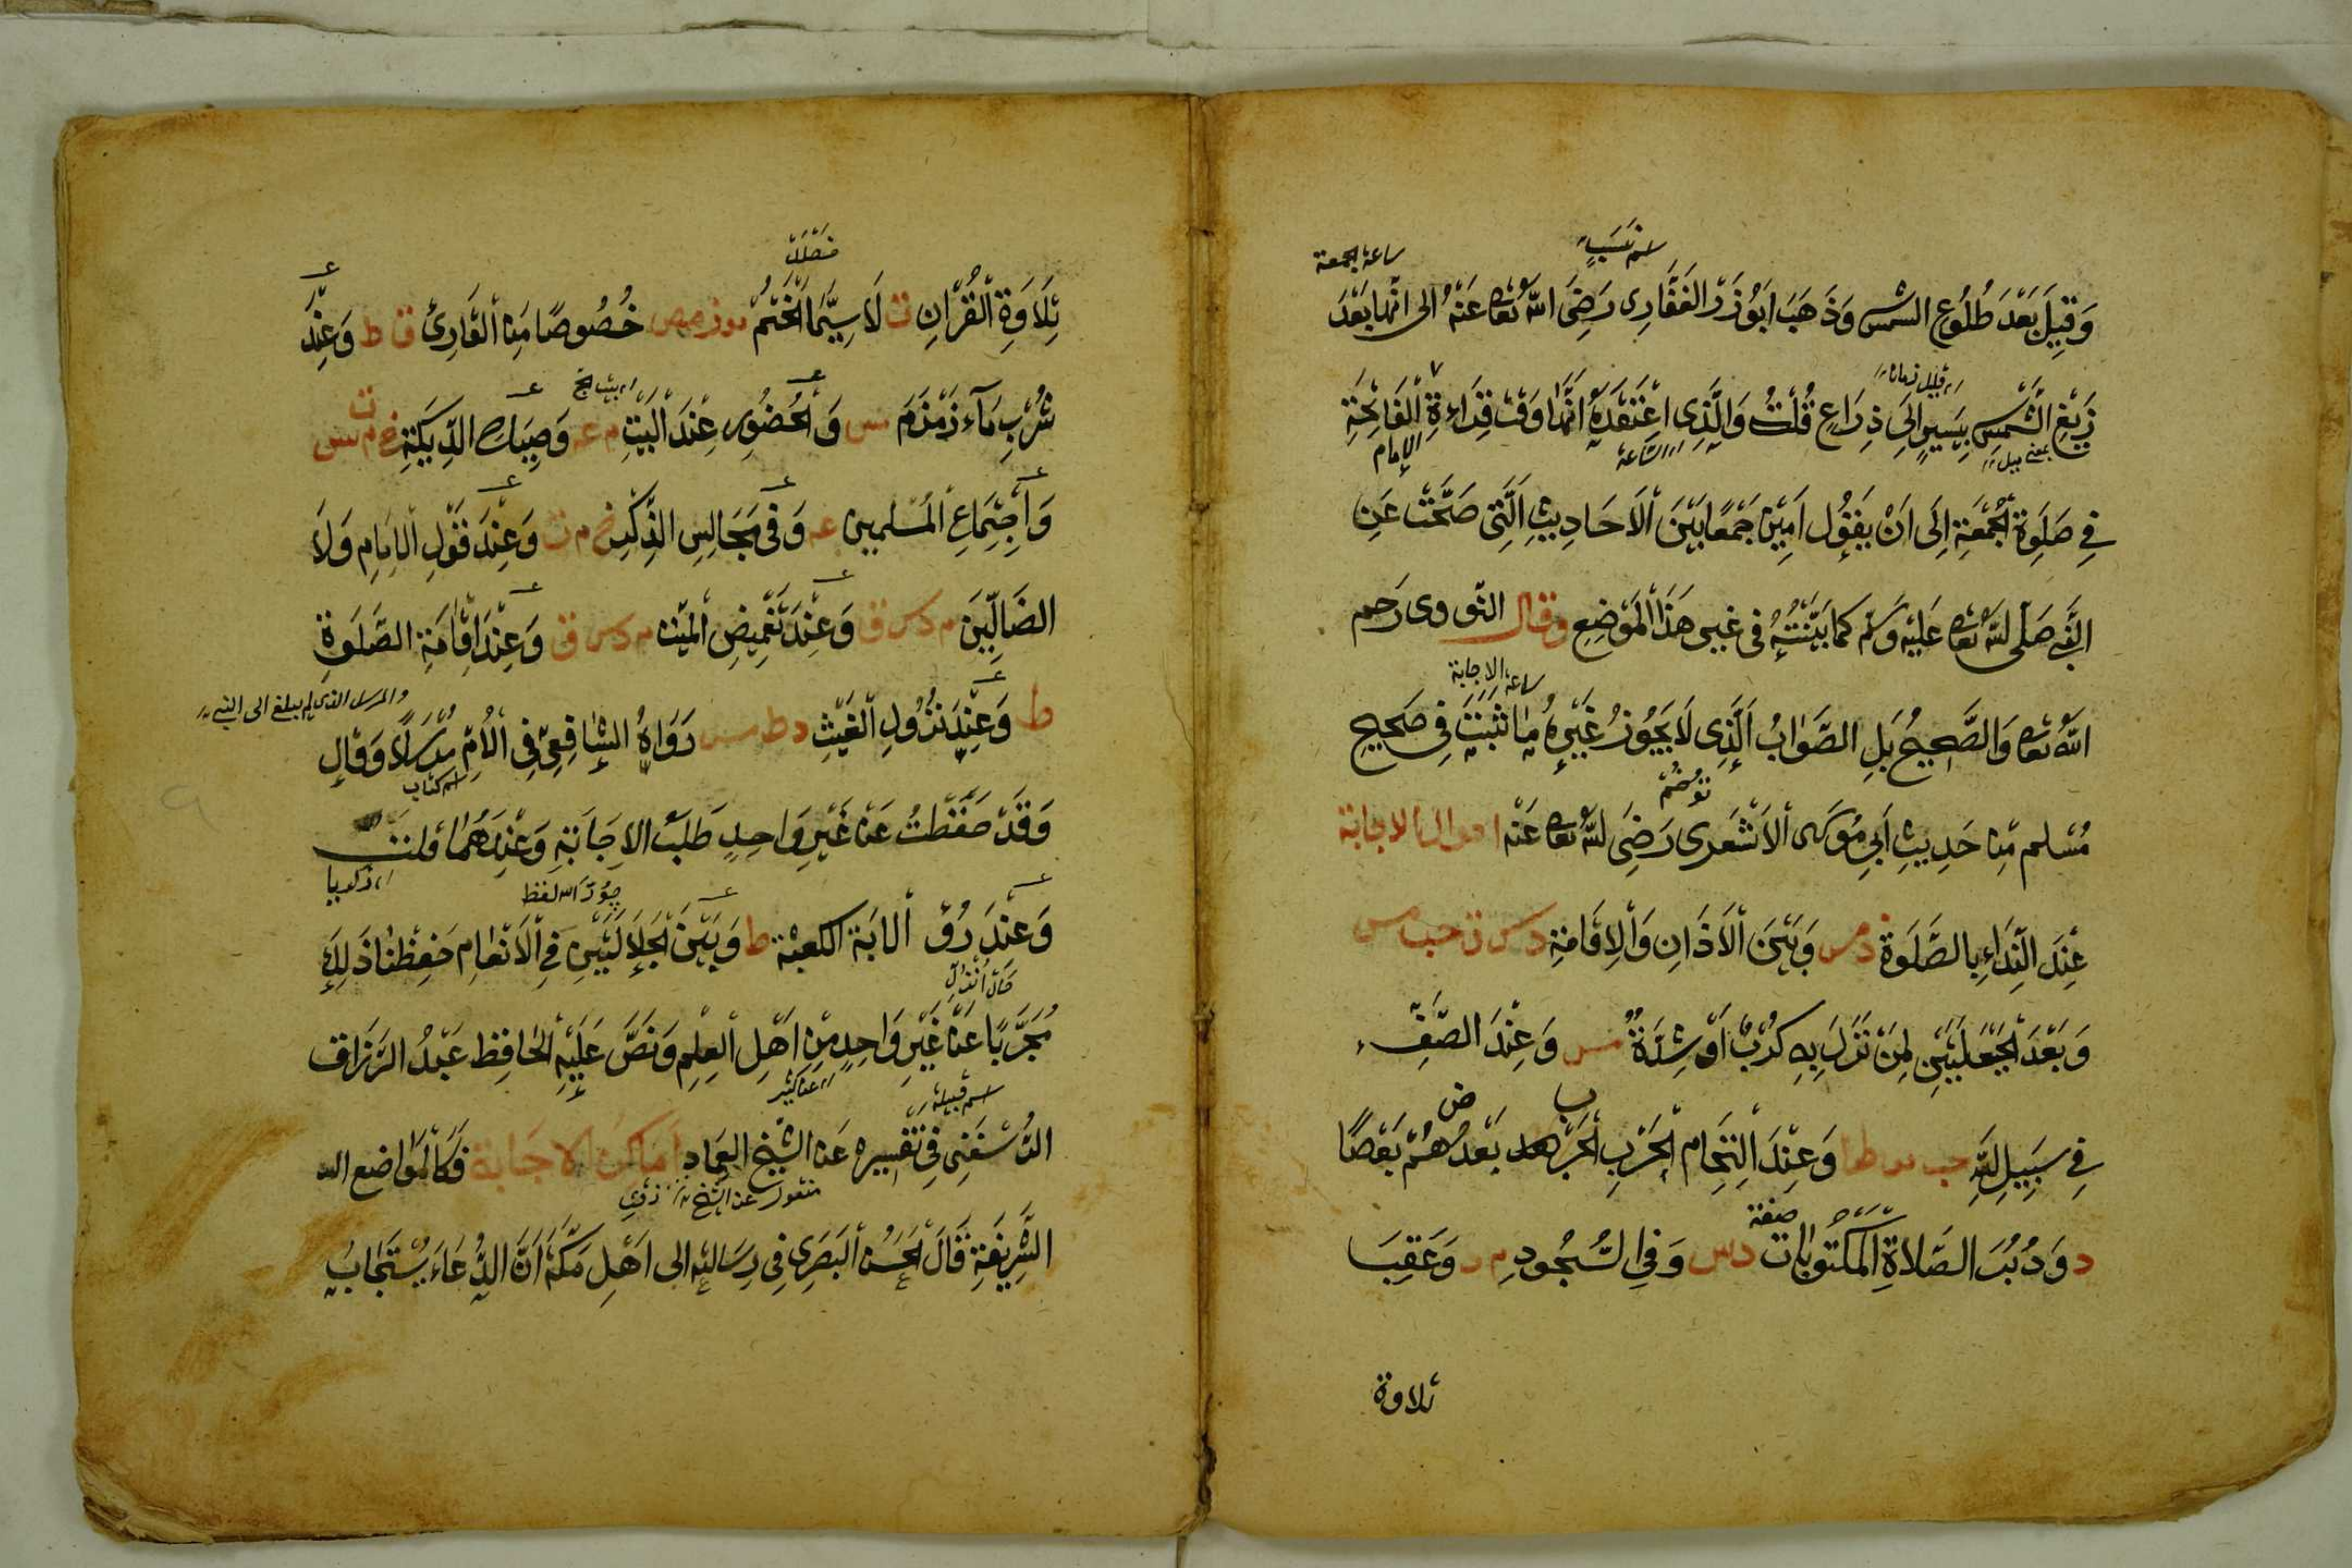 ساعة الجمعة
وَقِيلَ بَعْدَ طُلُوعِ الشمس وَذَهَبَ اَبُوْذَرْ الغَفَّارِى رَضِىَ اللّٰهُ تعالى عَنْهُ الى انّها بَعْدَ
زَيْغِ الشَّمْسِ بِيَسِيرٍ اِلىَ ذِرَاعٍ قُلْتُ وَالَّذِى اَعْتَقِدُهُ اَنَّهَا وَقْت قِرَاءةِ الْفَاتِحَةِ
الامام
فِي صَلٰوةِ الْجُمْعَةِ اِلَى اَنْ يَقُوُل اٰمِيْن جَمْعًا بَيْنَ الْاَحَادِيثِ الَّتِى صَحَّتْ عَنِ
النَّبِى صَلَّى اللّٰه تعالى عَلَيْه وَسَلَّم كما بَيَّنْتُهُ فى غيرِ هَذَا الْمَوْضِعِ وقال النَّووى رَحِمَه
ساعة الاجابة
اللّٰه تعالى وَالصَّحِيحُ بَلِ الصَّوَابُ الَّذِى لَا يَجُوْزُ غَيْرِهُ مَا ثَبَتَ فِى صَحِيحِ
مُسْلم مِنْ حَدِيثِ اَبِى مُوسَى الْاَشْعَرى رَضِىَ اللّٰه تعالى عَنْه احوال الاجابة
عِنْدَ النِّدَاءِ بِالصَّلٰوة د مس وَبَيْنَ الْاَذَانِ وَالْاِقَامَةِ د س ت حب مس
وَبَعْدَ الْحَيْعَلَتَيْنِ لِمَنْ نَزَلَ بِهِ كَرْبٌ اَوْ شِدَّةٌ مس وَعِنْدَ الصَّفِّ
فِي سَبِيلِ اللّٰهِ حب مو طا وَعِنْدَ الْتِحَامِ الْحَرْبِ بَعْضُهُمْ بَعْضًا
د وَدُبُرَ الصَّلَاةِ الْمَكْتُوبَات ت س وَفِي السُّجُودِ م د وَعَقِيبَ
تلاوة
تِلَاوَةِ الْقُرْآنِ ت لَا سِيَّمَا الْخَتْمُ خُصُوصًا مِنَ الْقَارِئ ت ط وَعِنْدَ
شُرْبِ مَآءِ زَمْزَمَ مس وَالْحُضُورِ عِنْدَ الْمَيِّتِ م عه وَصِيَاح الدِّيَكَةِ خ م ت س
وَاجْتِمَاعِ الْمُسْلِمين عه وَفى مَجَالِسِ الذِّكْرِ خ م ت وَعِنْدَ قَوْلِ الْاِمَامِ وَلَا
الضَالِّيْنَ م د س ق وَعِنْدَ تَغْمِيْضِ الْمَيِّت م د س ق وَعِنْدَ اِقَامَةِ الصَّلٰوةِ
والمرسل الذى لم يبلغ الى النبى
ط وَعِنْدَ نُزُولِ الْغَيْثِ د ط مس رَوَاهُ الشَّافِعِىّ فِى الْاُمِّ مُرْسَلًا وَقَالَ
اسم كتاب
وَقَدْ حَفَظْتُ عَنْ غَيْرِ وَاحِدٍ طَلَبَ الاِجَابَةِ وَعِنْدَهُمَا قلت
وَعِنْدَ رُؤْيَة الكعبْة ط وَبَيْنَ الْجَلَالَتَيْنِ فِى الْاَنْعَام حَفِظْنَا ذَلِكَ
مُجَرَّبًا عَنْ غَيْرِ وَاحِدٍ مِنْ اَهْلِ الْعِلْمِ وَنَصَّ عَلَيْهِ الْحَافِظ عَبْدُ الرَّزَاق
اسم قبيلة
الرَّسْعَنِى فِى تَفْسِيرِه عَنِ الشَّيْخِ الْعِمَادِ اَمَاكِنُ الاجَابَة فَكَالْمَوَاضِع
منقول عن الشيخ
الشَّرِيفَةِ قَالَ الْحَسَنُ الْبَصَرِى فِى رِسَالَتِه الى اَهْلِ مَكَّةَ اَنَّ الدُّعَاءَ يُسْتَجَابُ